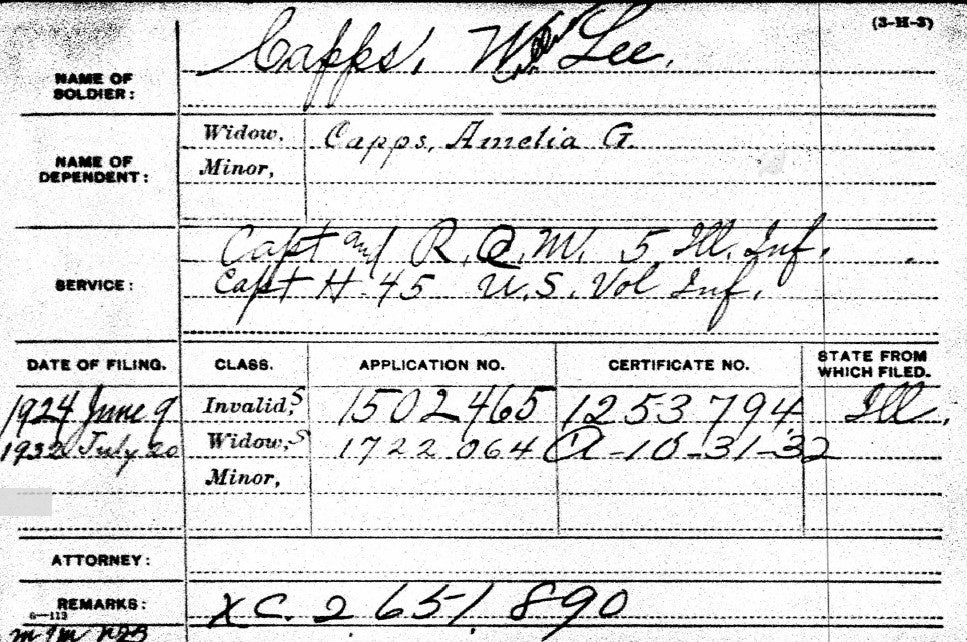 (3-H-3)
NAME OF SOLDIER: Capps, Wm Lee.
NAME OF DEPENDENT: Widow, Capps, Amelia G.
Minor,
SERVICE: Capt and R.Q.M. 5. Ill. Inf.
Capt H. 45 U.S. Vol Inf.
DATE OF FILING. CLASS. APPLICATION NO. CERTIFICATE NO. STATE FROM WHICH FILED.
1924 June 9 Invalid, S 1502465 1253794 Ill.
1932 July 20 Widow, S 1722 064 A-10-31-32
Minor,
ATTORNEY:
REMARKS: XC. 2 651 890
6-113